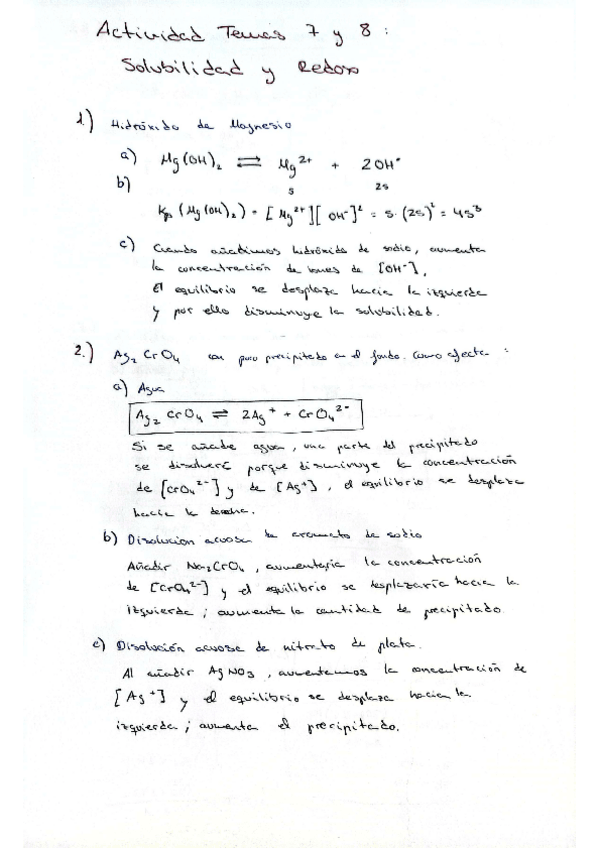 Actividad Temas 7 y 8 :
Solubilidad y Redox
1.) Hidróxido de Magnesio
a) Mg(OH)₂ ⇌ Mg²⁺ + 2OH⁻
b) s 2s
Kp (Mg(OH)₂) = [Mg²⁺][OH⁻]² = s · (2s)² = 4s³
c) Cuando añadimos hidróxido de sodio, aumenta
la concentración de iones de [OH⁻],
el equilibrio se desplaza hacia la izquierda
y por ello disminuye la solubilidad.
2.) Ag₂CrO₄ con poco precipitado en el fondo. Como afecta :
a) Agua
Ag₂CrO₄ ⇌ 2Ag⁺ + CrO₄²⁻
Si se añade agua, una parte del precipitado
se disolverá porque disminuye la concentración
de [CrO₄²⁻] y de [Ag⁺], el equilibrio se desplaza
hacia la derecha.
b) Disolucion acuosa de cromato de sodio
Añadir Na₂CrO₄, aumentaría la concentración
de [CrO₄²⁻] y el equilibrio se desplazaría hacia la
izquierda ; aumenta la cantidad de precipitado.
c) Disolución acuosa de nitrato de plata.
Al añadir AgNO₃, aumentamos la concentración de
[Ag⁺] y el equilibrio se desplaza hacia la
izquierda ; aumenta el precipitado.